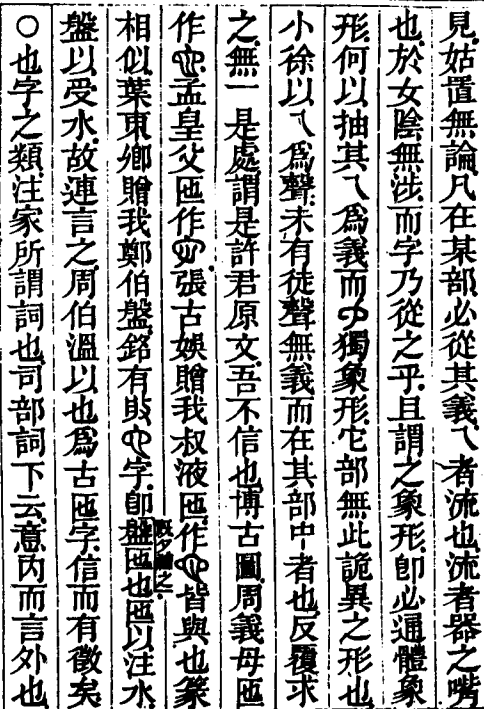 見.姑置無論.凡在某部必從其義.乁者流也.流者器之嘴
也.於女陰無涉.而字乃從之乎.且謂之象形.卽必通體象
形.何以抽其乁爲義.而獨象形.它部無此詭異之形也.
小徐以乁爲聲.未有徒聲無義而在其部中者也.反覆求
之.無一是處.謂是許君原文.吾不信也.博古圖.周義母匜
作.孟皇父匜作.張古娛贈我叔液匜.作皆與也篆
相似.葉東鄉贈我鄭伯盤.銘有字.卽盤匜也.匜以注水.
盤以受水.故連言之.周伯溫以也爲古匜字.信而有徵矣.
○也字之類.注家所謂詞也.司部詞下云.意内而言外也.